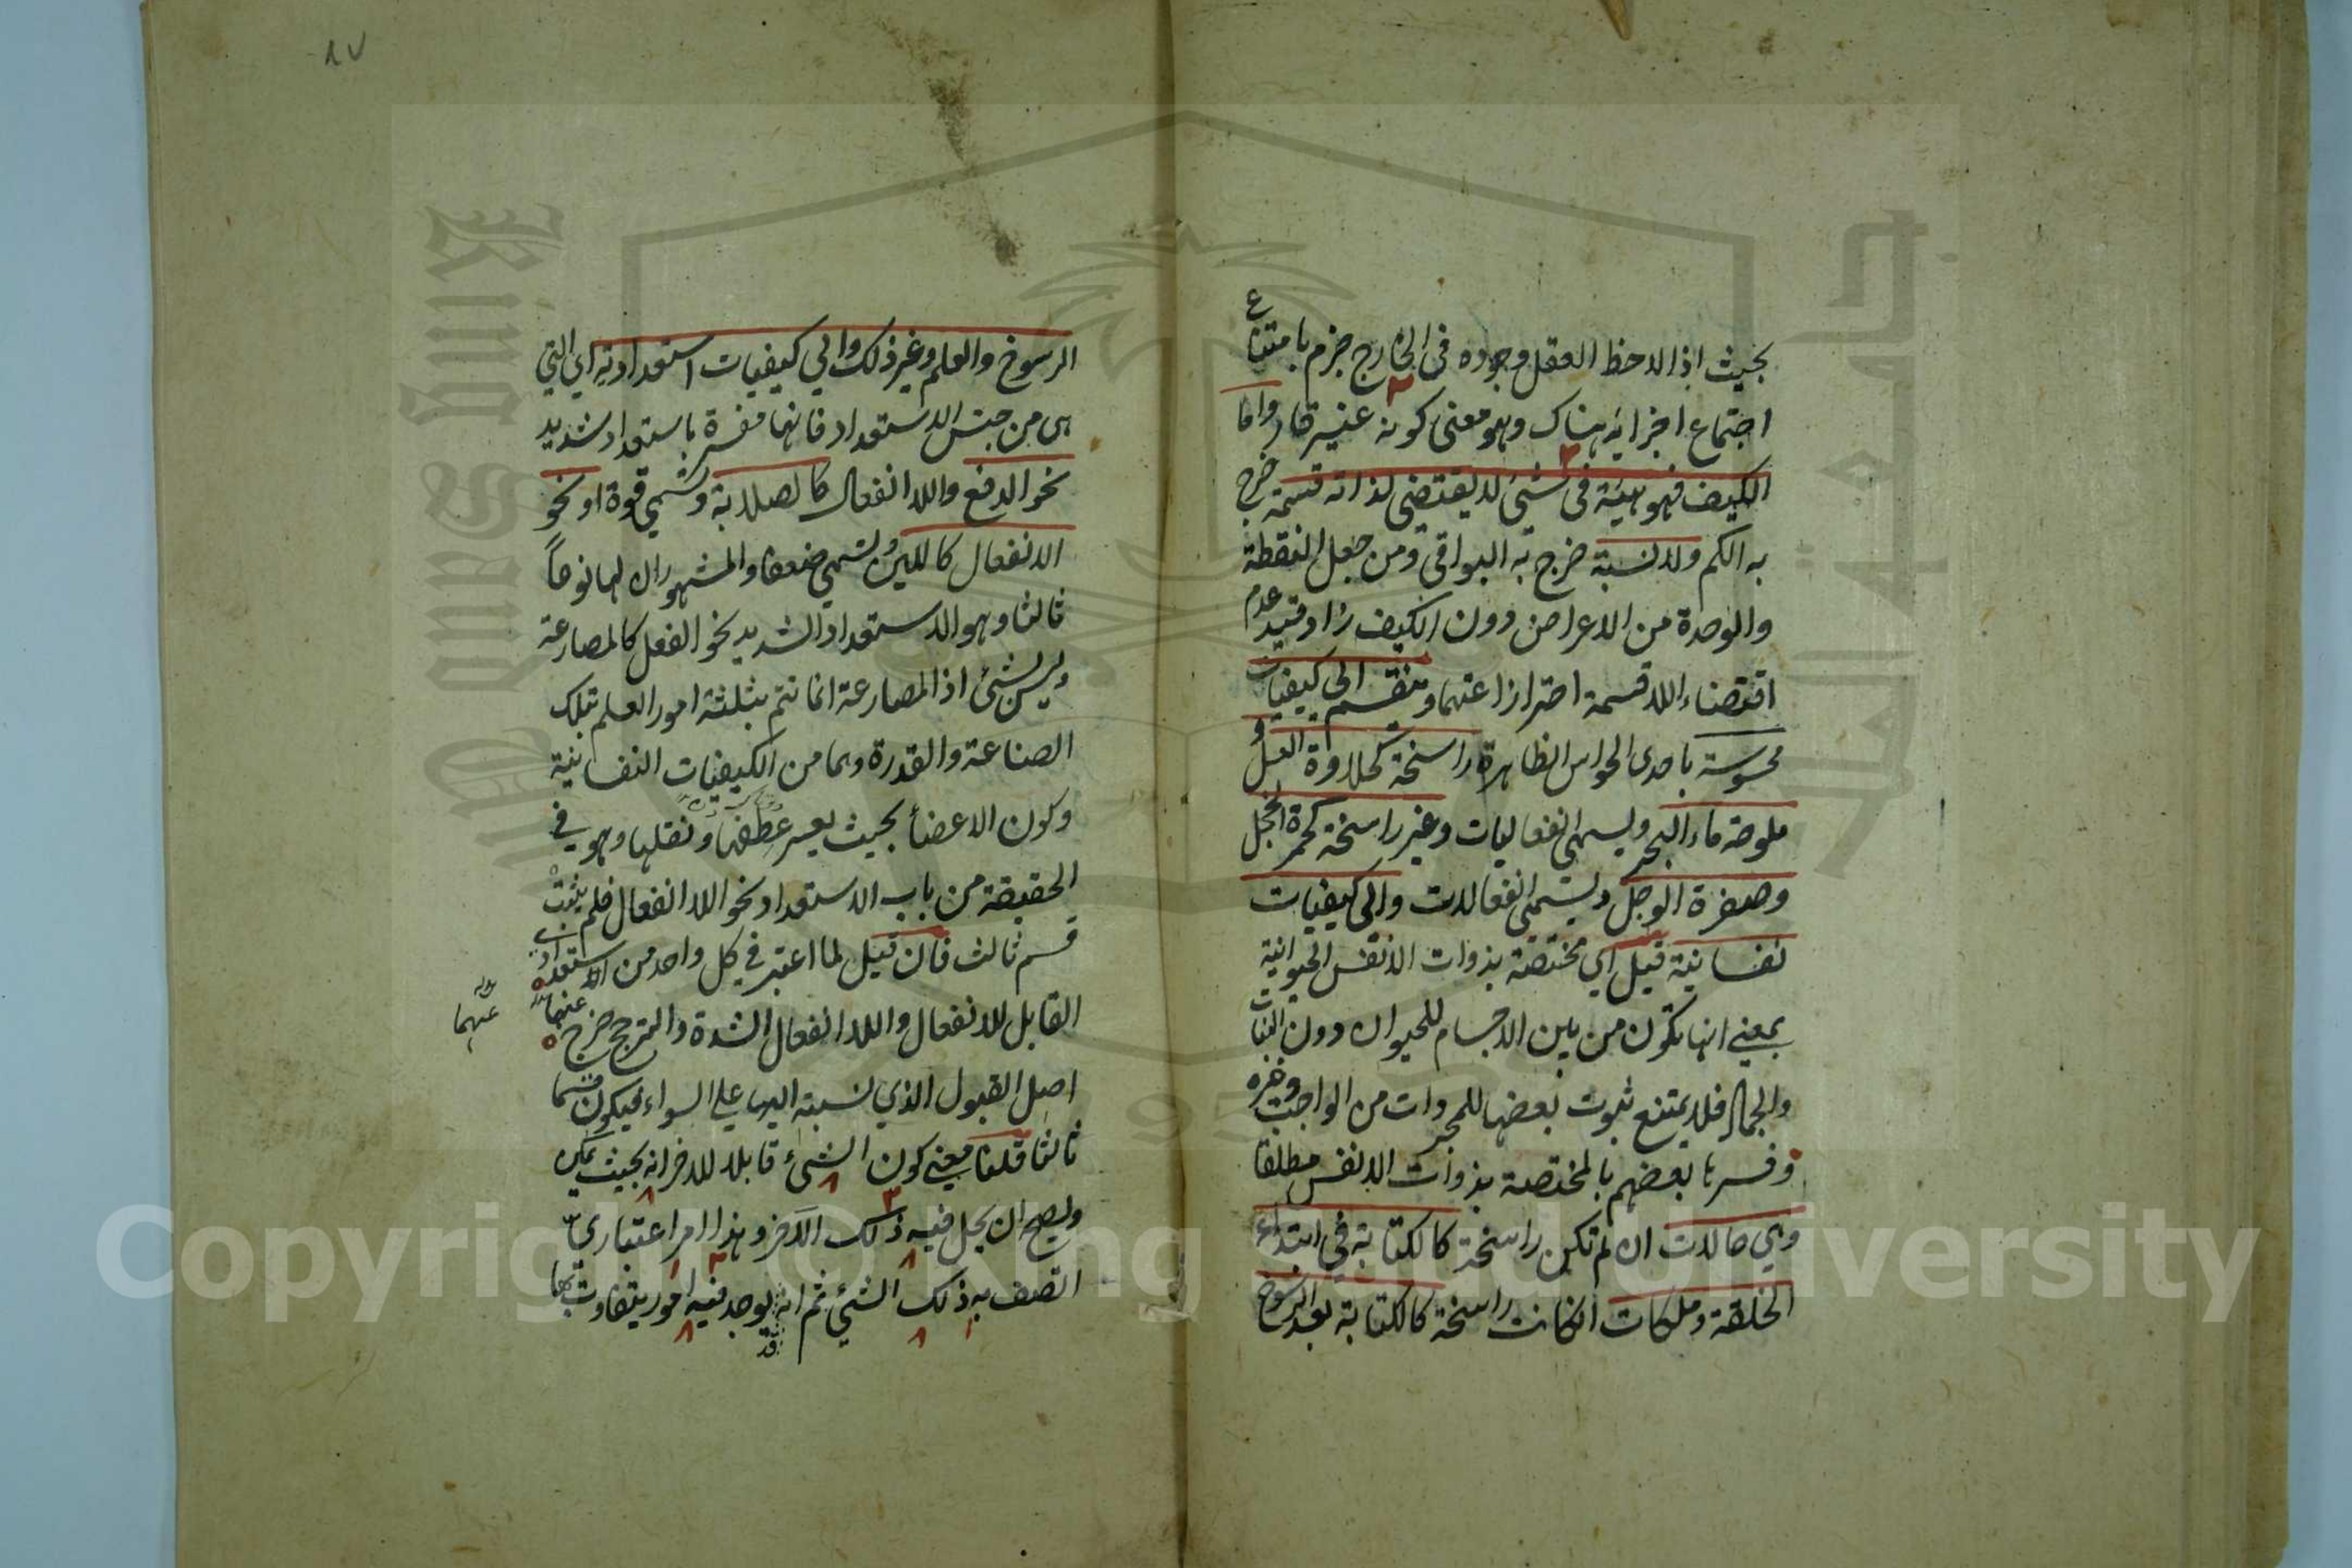 بحيث اذا لاحظ العقل وجوده في الخارج جزم بامتناع
اجتماع اجزائه هناك وهو معنى كونه غير قار واما
الكيف فهو هيئة في شيئ لا يقتضي لذاته قسمة خرج
به الكم ولا نسبة خرج به البواقي ومن جعل النقطة
والوحدة من الاعراض دون الكيف زاد قيد عدم
اقتضاء اللا قسمة احترازا عنهما وينقسم الى كيفيات
محسوسة باحدى الحواس الظاهرة راسخة كحلاوة العسل و
ملوحة ماء البحر ويسمى انفعاليات وغير راسخة كحمرة الخجل
وصفرة الوجل ويسمى انفعالات والى كيفيات
نفسانية قيل اي مختصة بذوات الانفس الحيوانية
بمعني انها تكون من بين الاجسام للحيوان دون النبات
والجماد فلا يمتنع ثبوت بعضها للمجردات من الواجب وغيره
وفسرها بعضهم بالمختصة بذوات الانفس مطلقا
وهي حالات ان لم تكن راسخة كالكتابة في ابتداء
الخلقة وملكات ان كانت راسخة كالكتابة بعد الرسوخ
٨٧
الرسوخ والعلم وغير ذلك والي كيفيات استعدادية اي التي
هي من جنس الاستعداد فانها مفسرة باستعداد شديد
نحو الدفع واللا انفعال كالصلابة وتسمي قوة او نحو
الانفعال كاللين وتسمي ضعفا والمشهور ان لها نوعاً
ثالثا وهو الاستعداد الشديد نحو الفعل كالمصارعة
وليس بشئ اذ المصارعة انما تتم بثلثة امور العلم بتلك
الصناعة والقدرة وهما من الكيفيات النفسانية
وكون الاعضأ بحيث يعسر عطفها ونقلها وهو في
الحقيقة من باب الاستعداد نحو اللا انفعال فلم يثبت
قسم ثالث فان قيل لما اعتبر في كل واحد من الاستعداد
القابل للانفعال واللا انفعال الشدة والترجح خرج عنها
عنهما
اصل القبول الذي نسبته اليهما علي السواء فيكون قسما
ثالثا قلنا معني كون الشئ قابلا للاخر انه بحيث يمكن
ويصح ان يحل فيه ذلك الآخر وهذا امر اعتباري
اتصف به ذلك الشئ ثم انه قد يوجد فيه امور يتفاوت بها
King Saud University
Copyright © King Saud University